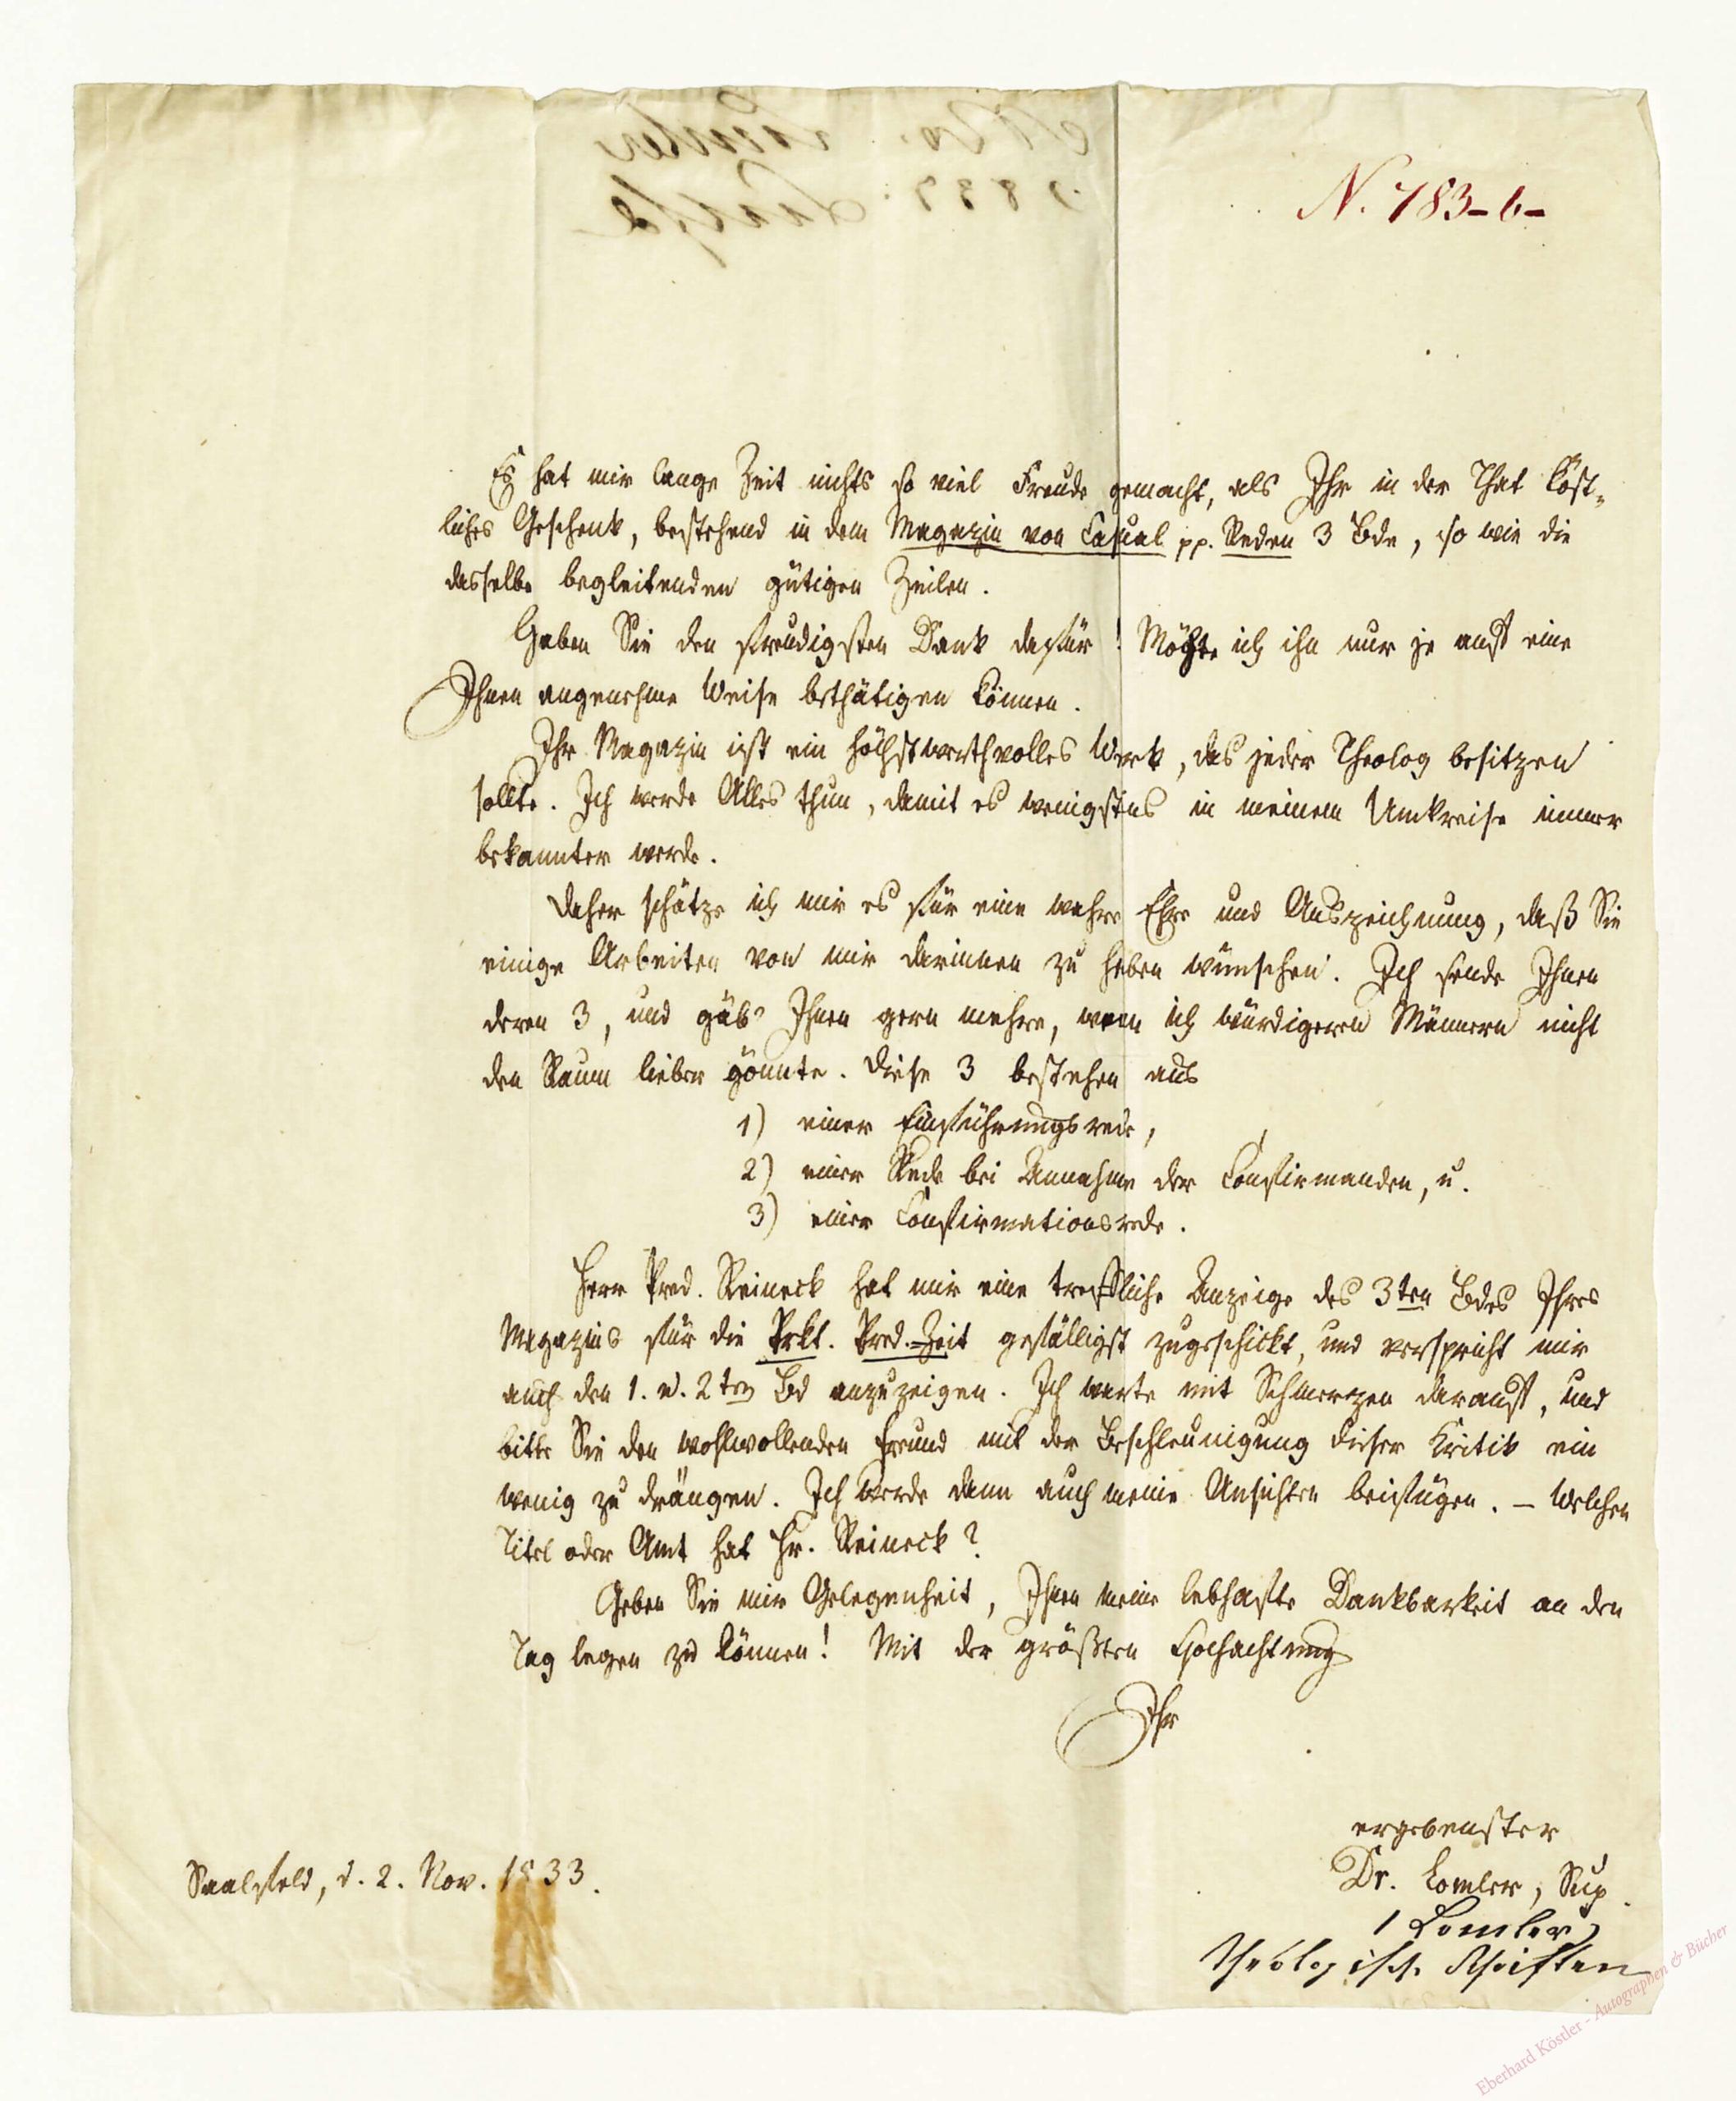 N. 783-b-
Es hat mir lange Zeit nichts so viel Freude gemacht, als Ihr in der That köst-
liches Geschenk, bestehend in dem Magazin von Casual pp. Reden 3 Bde, so wie die
dasselbe begleitenden gütigen Zeilen.
Haben Sie den freudigsten Dank dafür! Möchte ich ihn nur je auf eine
Ihnen angenehme Weise bethätigen können.
Ihr Magazin ist ein höchst werthvolles Werk, das jeder Theolog besitzen
sollte. Ich werde Alles thun, damit es wenigstens in meinem Umkreise immer
bekannter werde.
Daher schätze ich mir es für eine wahre Ehre und Auszeichnung, daß Sie
einige Arbeiten von mir darinnen zu haben wünschen. Ich sende Ihnen
deren 3, und gäb' Ihnen gern mehre, wenn ich würdigern Männern nicht
den Raum lieber gönnte. Diese 3 bestehen aus
1) einer Einführungsrede,
2) einer Rede bei Annahme der Confirmanden, u.
3) einer Confirmationsrede.
Herr Pred. Reineck hat mir eine treffliche Anzeige des 3ten Bdes Ihres
Magazins für die Prkt. Pred.-Zeit gefälligst zugeschickt, und verspricht mir
auch den 1. u. 2ten Bd anzuzeigen. Ich warte mit Schmerzen darauf, und
bitte Sie den wohlwollenden Freund mit der Beschleunigung dieser Kritik ein
wenig zu drängen. Ich werde dann auch meine Ansichten beifügen. – Welchen
Titel oder Amt hat Hr. Reineck?
Geben Sie mir Gelegenheit, Ihnen meine lebhafte Dankbarkeit an den
Tag legen zu können! Mit der größten Hochachtung
Ihr
ergebenster
Dr. Lomler, Sup.
Saalfeld, d. 2. Nov. 1833.
Lomler
Theologische Schriften
Eberhard Köstler - Autographen & Bücher